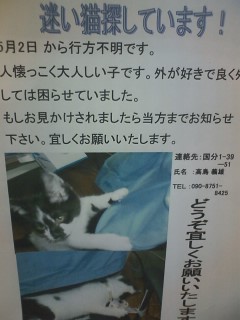 迷い猫探しています！
5月2日 から行方不明です。
人懐っこく大人しい子です。外が好きで良く外
しては困らせていました。
もしお見かけされましたら当方までお知らせ
下さい。宜しくお願いいたします。
連絡先：国分1-39
―51
氏名 ：高島 義雄
TEL：090-8751-
8425
どうぞ宜しくお願いいたします